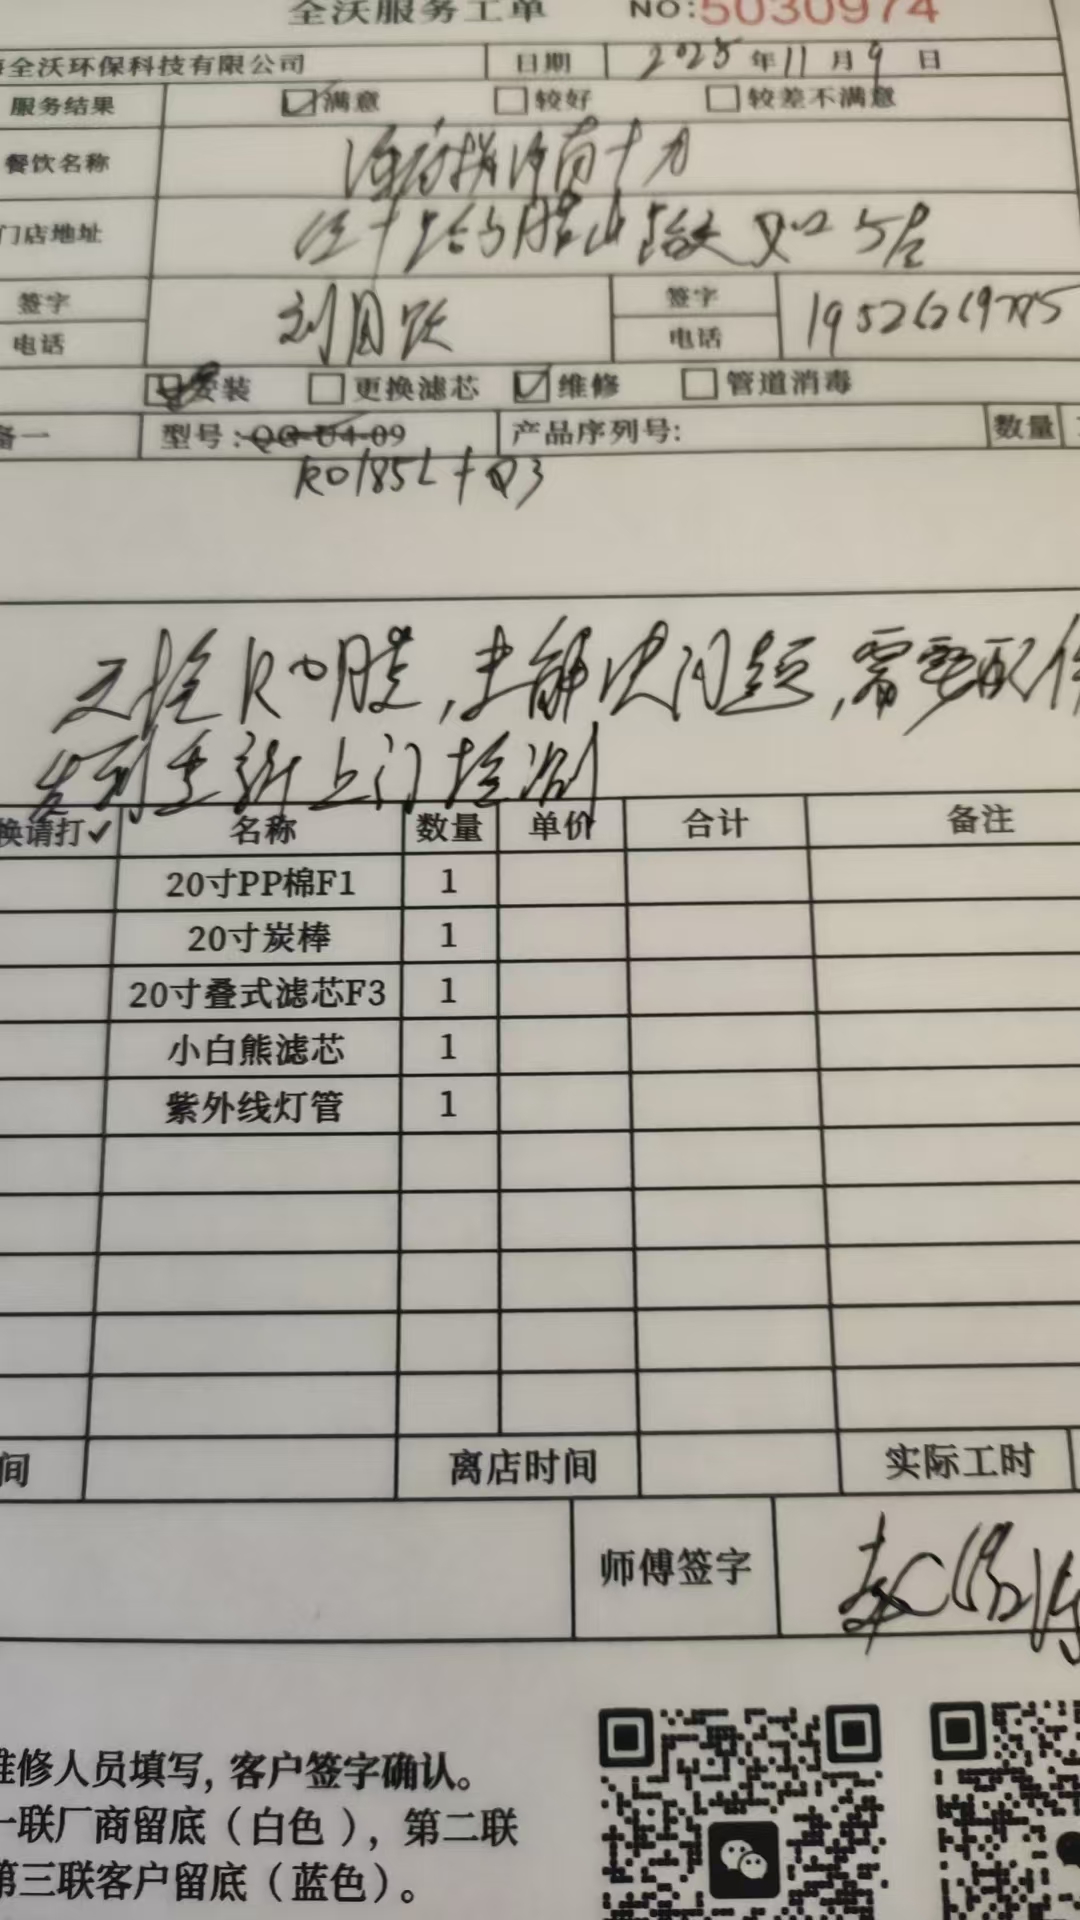 全沃服务工单 NO:5030974
海全沃环保科技有限公司 日期 2025年11月9日
服务结果 满意 较好 较差不满意
餐饮名称
门店地址 路交叉口
签字 刘月跃 签字
电话 电话
安装 更换滤芯 维修 管道消毒
备一 型号:QG-U4-09 产品序列号: 数量
RO185L+Q3
RO膜,未解决问题,需要配件
发到重新上门检测
换请打✓ 名称 数量 单价 合计 备注
20寸PP棉F1 1
20寸炭棒 1
20寸叠式滤芯F3 1
小白熊滤芯 1
紫外线灯管 1
间 离店时间 实际工时
师傅签字
维修人员填写, 客户签字确认。
一联厂商留底(白色), 第二联
第三联客户留底(蓝色)。